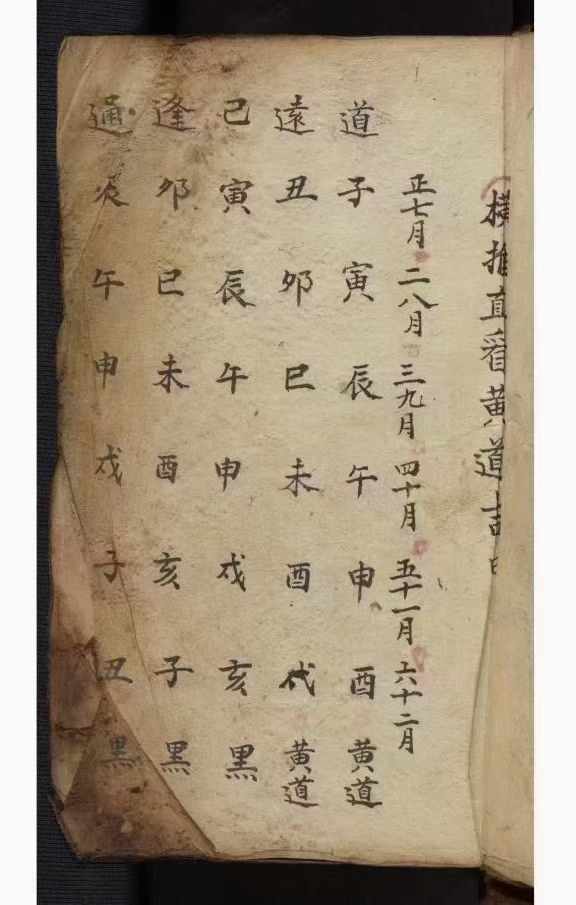 横推直看黄道吉
正七月 二八月 三九月 四十月 五十一月 六十二月
道 子 寅 辰 午 申 酉 黄道
遠 丑 卯 巳 未 酉 戌 黄道
己 寅 辰 午 申 戌 亥 黑
逢 卯 巳 未 酉 亥 子 黑
通 辰 午 申 戌 子 丑 黑